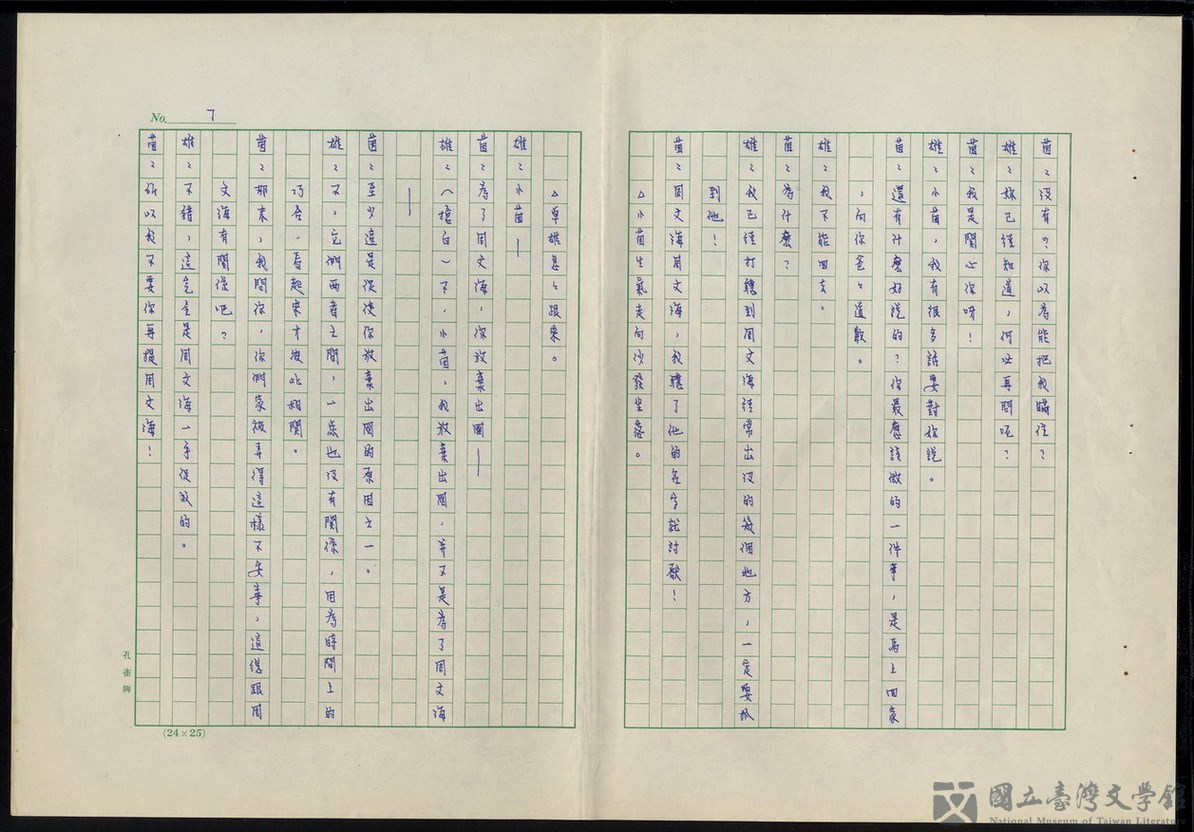 茵：没有？你以為能把我瞞住？
雄：妳已經知道，何必再問呢？
茵：我是關心你呀！
雄：小茵，我有很多話要對妳說。
茵：還有什麼好說的？你最應該做的一件事，是馬上回家
，向你爸爸道歉。
雄：我不能回去。
茵：為什麼？
雄：我已經打聽到周文海經常出没的幾個地方，一定要抓
到他！
茵：周文海周文海，我聽了他的名字就討厭！
△小茵生氣走向沙發坐落。
△卓雄急急跟來。
雄：小茵—
茵：為了周文海，你放棄出國—
雄：（搶白）不，小茵，我放棄出國，並不是為了周文海
—
茵：至少這是促使你放棄出國的原因之一。
雄：不，它們兩者之間，一点也没有關係，因為時間上的
巧合，看起來才彼此相關。
茵：那末，我問你，你們家被弄得這樣不安寧，這總跟周
文海有關係吧？
雄：不錯，這完全是周文海一手促成的。
茵：所以我不要你再提周文海！
No. 7
孔雀牌
(24×25)
國立臺灣文學館
National Museum of Taiwan Literature